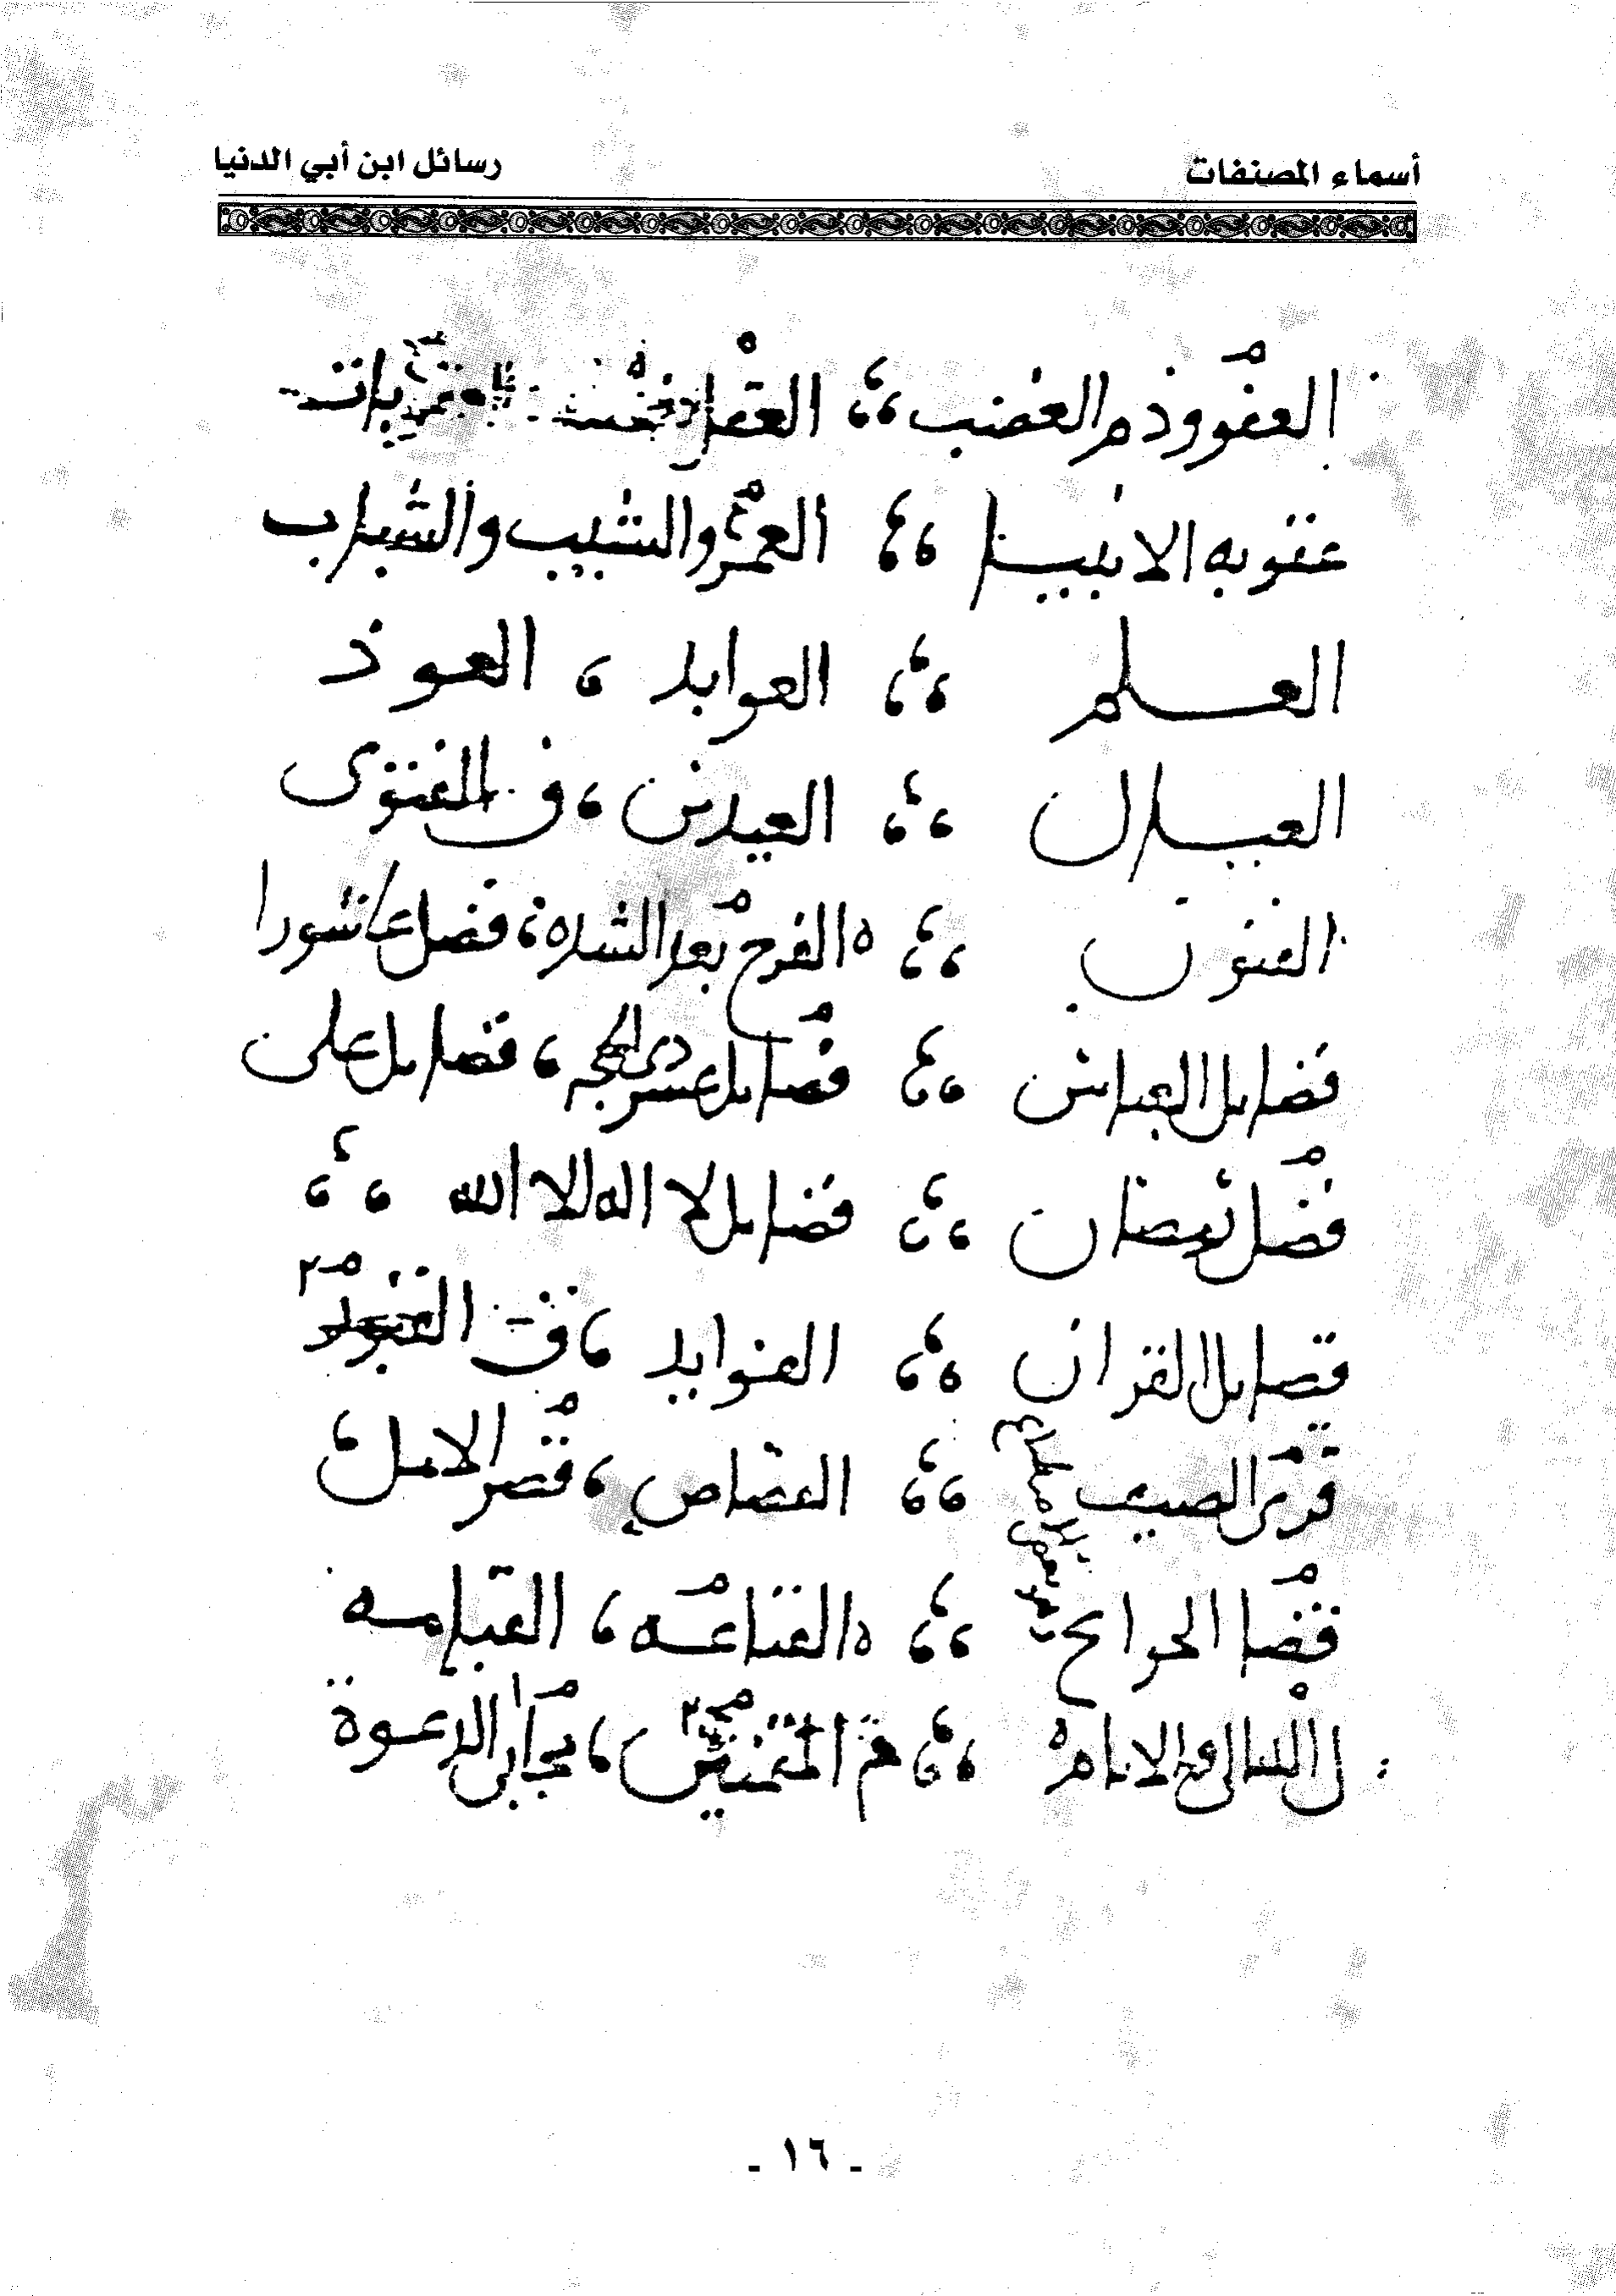 أسماء المصنفات رسائل ابن أبي الدنيا
العفو وذم الغضب العقوبات
عقوبه الانبيا العمر والشيب والشباب
العلم العوابد العوذ
العيال العيدين ف الفتوى
الفنون الفرج بعد الشده فضل عاشورا
فضايل العباس فضايل عشر ذى الحجه فضايل على
فضل رمضان فضايل لا اله الا الله
فضايل القران الفوايد ق القبور
قرى الضيف القصاص قصر الامل
قضا الحوايج القناعه القيامه
ل الليالى والايام م المتمنين مجابى الدعوة
- ١٦ -